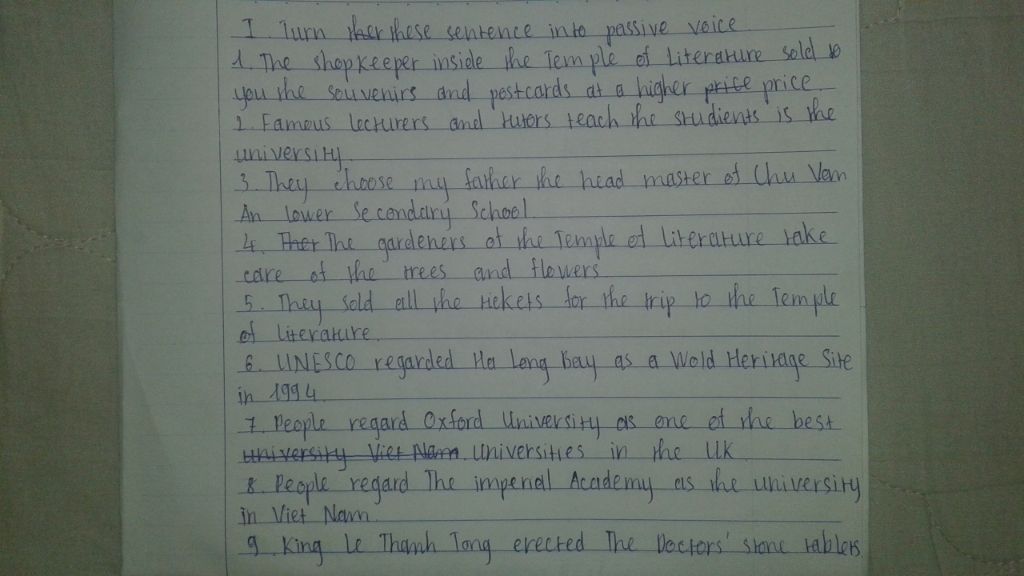 I. Turn ther these sentence into passive voice
1. The shopkeeper inside the Temple of Literature sold to
you the souvenirs and postcards at a higher price price.
2. Famous lecturers and tutors teach the studients is the
university.
3. They choose my father the head master of Chu Van
An lower Secondary School
4. Ther The gardeners of the Temple of Literature take
care of the trees and flowers
5. They sold all the tickets for the trip to the Temple
of literature.
6. UNESCO regarded Ha Long Bay as a Wold Heritage Site
in 1994
7. People regard Oxford University as one of the best
university Viet Nam. Universities in the UK
8. People regard The imperial Academy as the university
in Viet Nam.
9. King Le Thanh Tong erected The Doctors' stone tablets